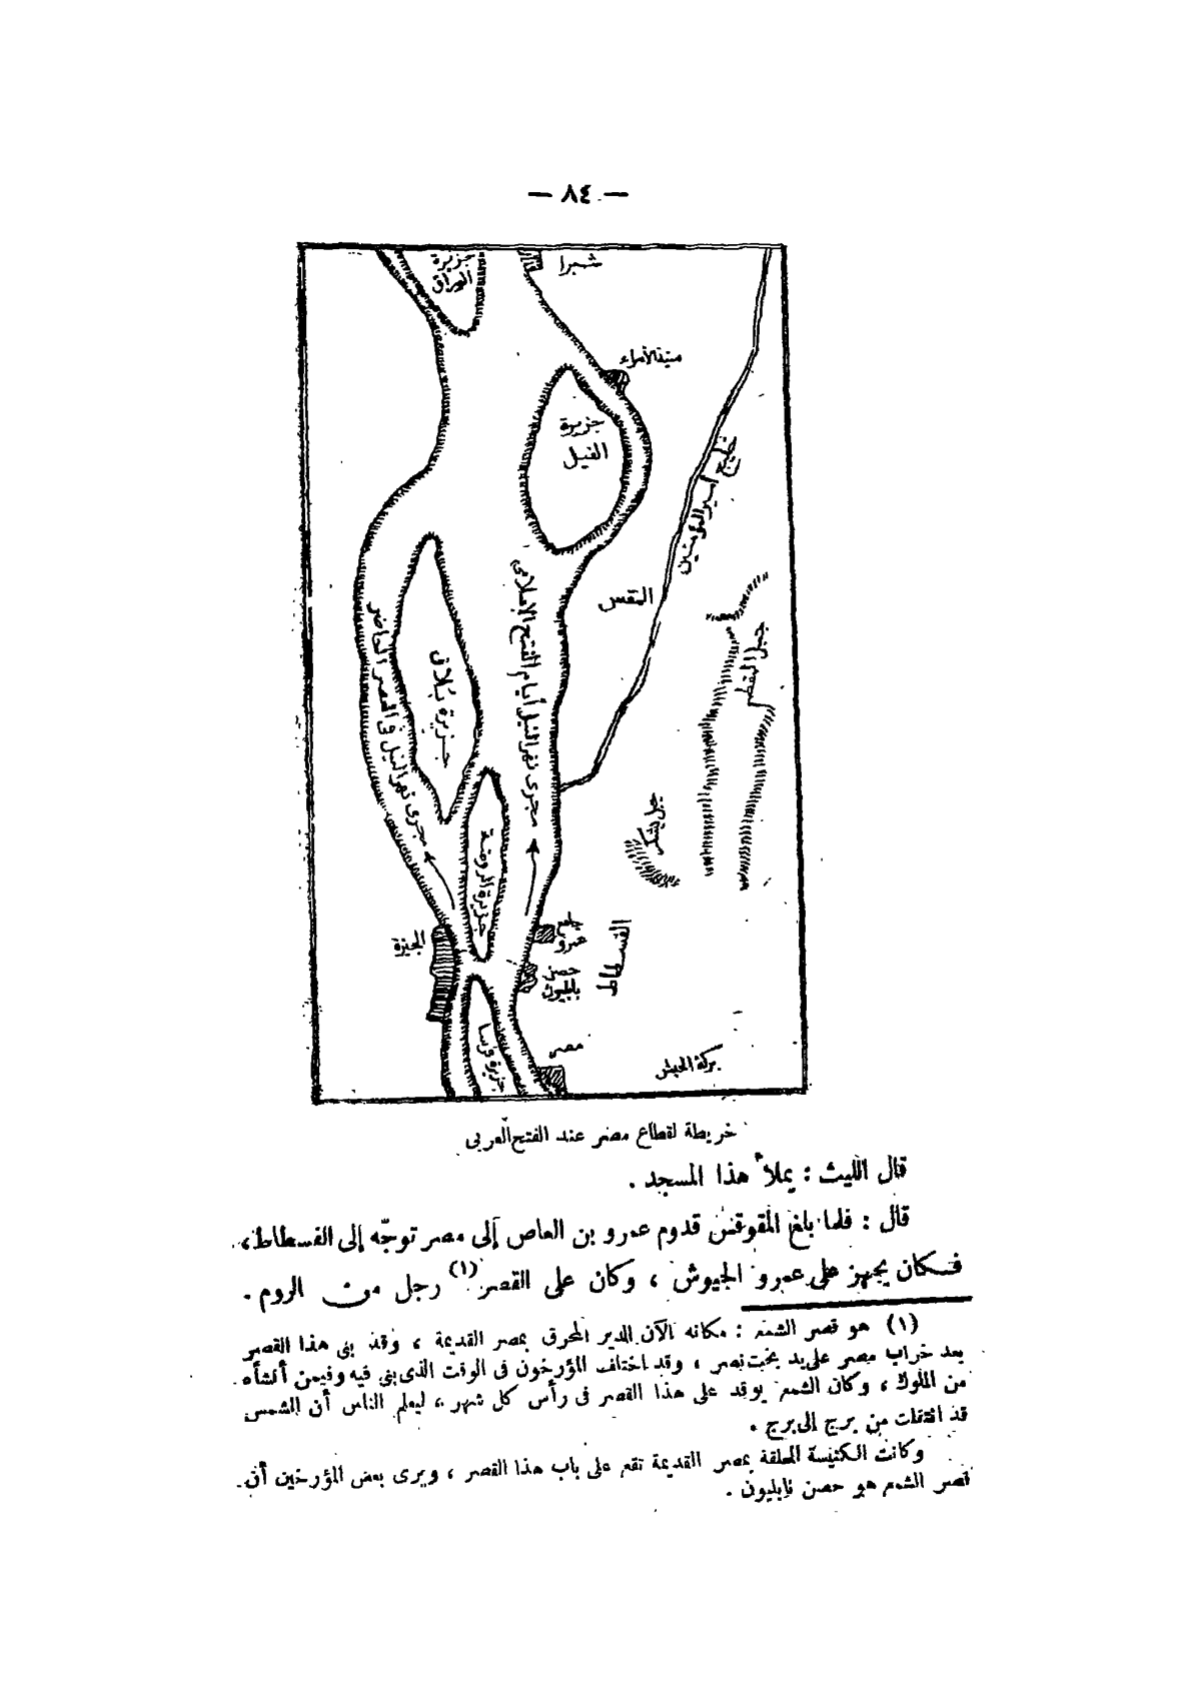 — ٨٤ —
جزيرة
الوراق
شبرا
منية الأمراء
جزيرة
الفيل
خليج أمير المؤمنين
المقس
جبل المقطم
مجرى نهر النيل أيام الفتح الإسلامى
مجرى نهر النيل فى العصر الحاضر
جزيرة بلاق
جبل يشكر
جزيرة الروضة
الجيزة
جامع
عمرو
حصن
بابليون
الفسطاط
جزيرة
مصر
بركة الحبش
خريطة لقطاع مصر عند الفتح العربى
قال الليث : يملأ هذا المسجد .
قال : فلما بلغ المقوقس قدوم عمرو بن العاص إلى مصر توجّه إلى الفسطاط ،
فكان يجهز على عمرو الجيوش ، وكان على القصر (١) رجل من الروم .
(١) هو قصر الشمع : مكانه الآن الدير المحرق بمصر القديمة ، وقد بنى هذا القصر
بعد خراب مصر على يد بختنصر ، وقد اختلف المؤرخون فى الوقت الذى بنى فيه وفيمن أنشأه
من الملوك ، وكان الشمع يوقد على هذا القصر فى رأس كل شهر ، ليعلم الناس أن الشمس
قد انتقلت من برج إلى برج .
وكانت الكنيسة المعلقة بمصر القديمة تقع على باب هذا القصر ، ويرى بعض المؤرخين أن
قصر الشمع هو حصن بابليون .